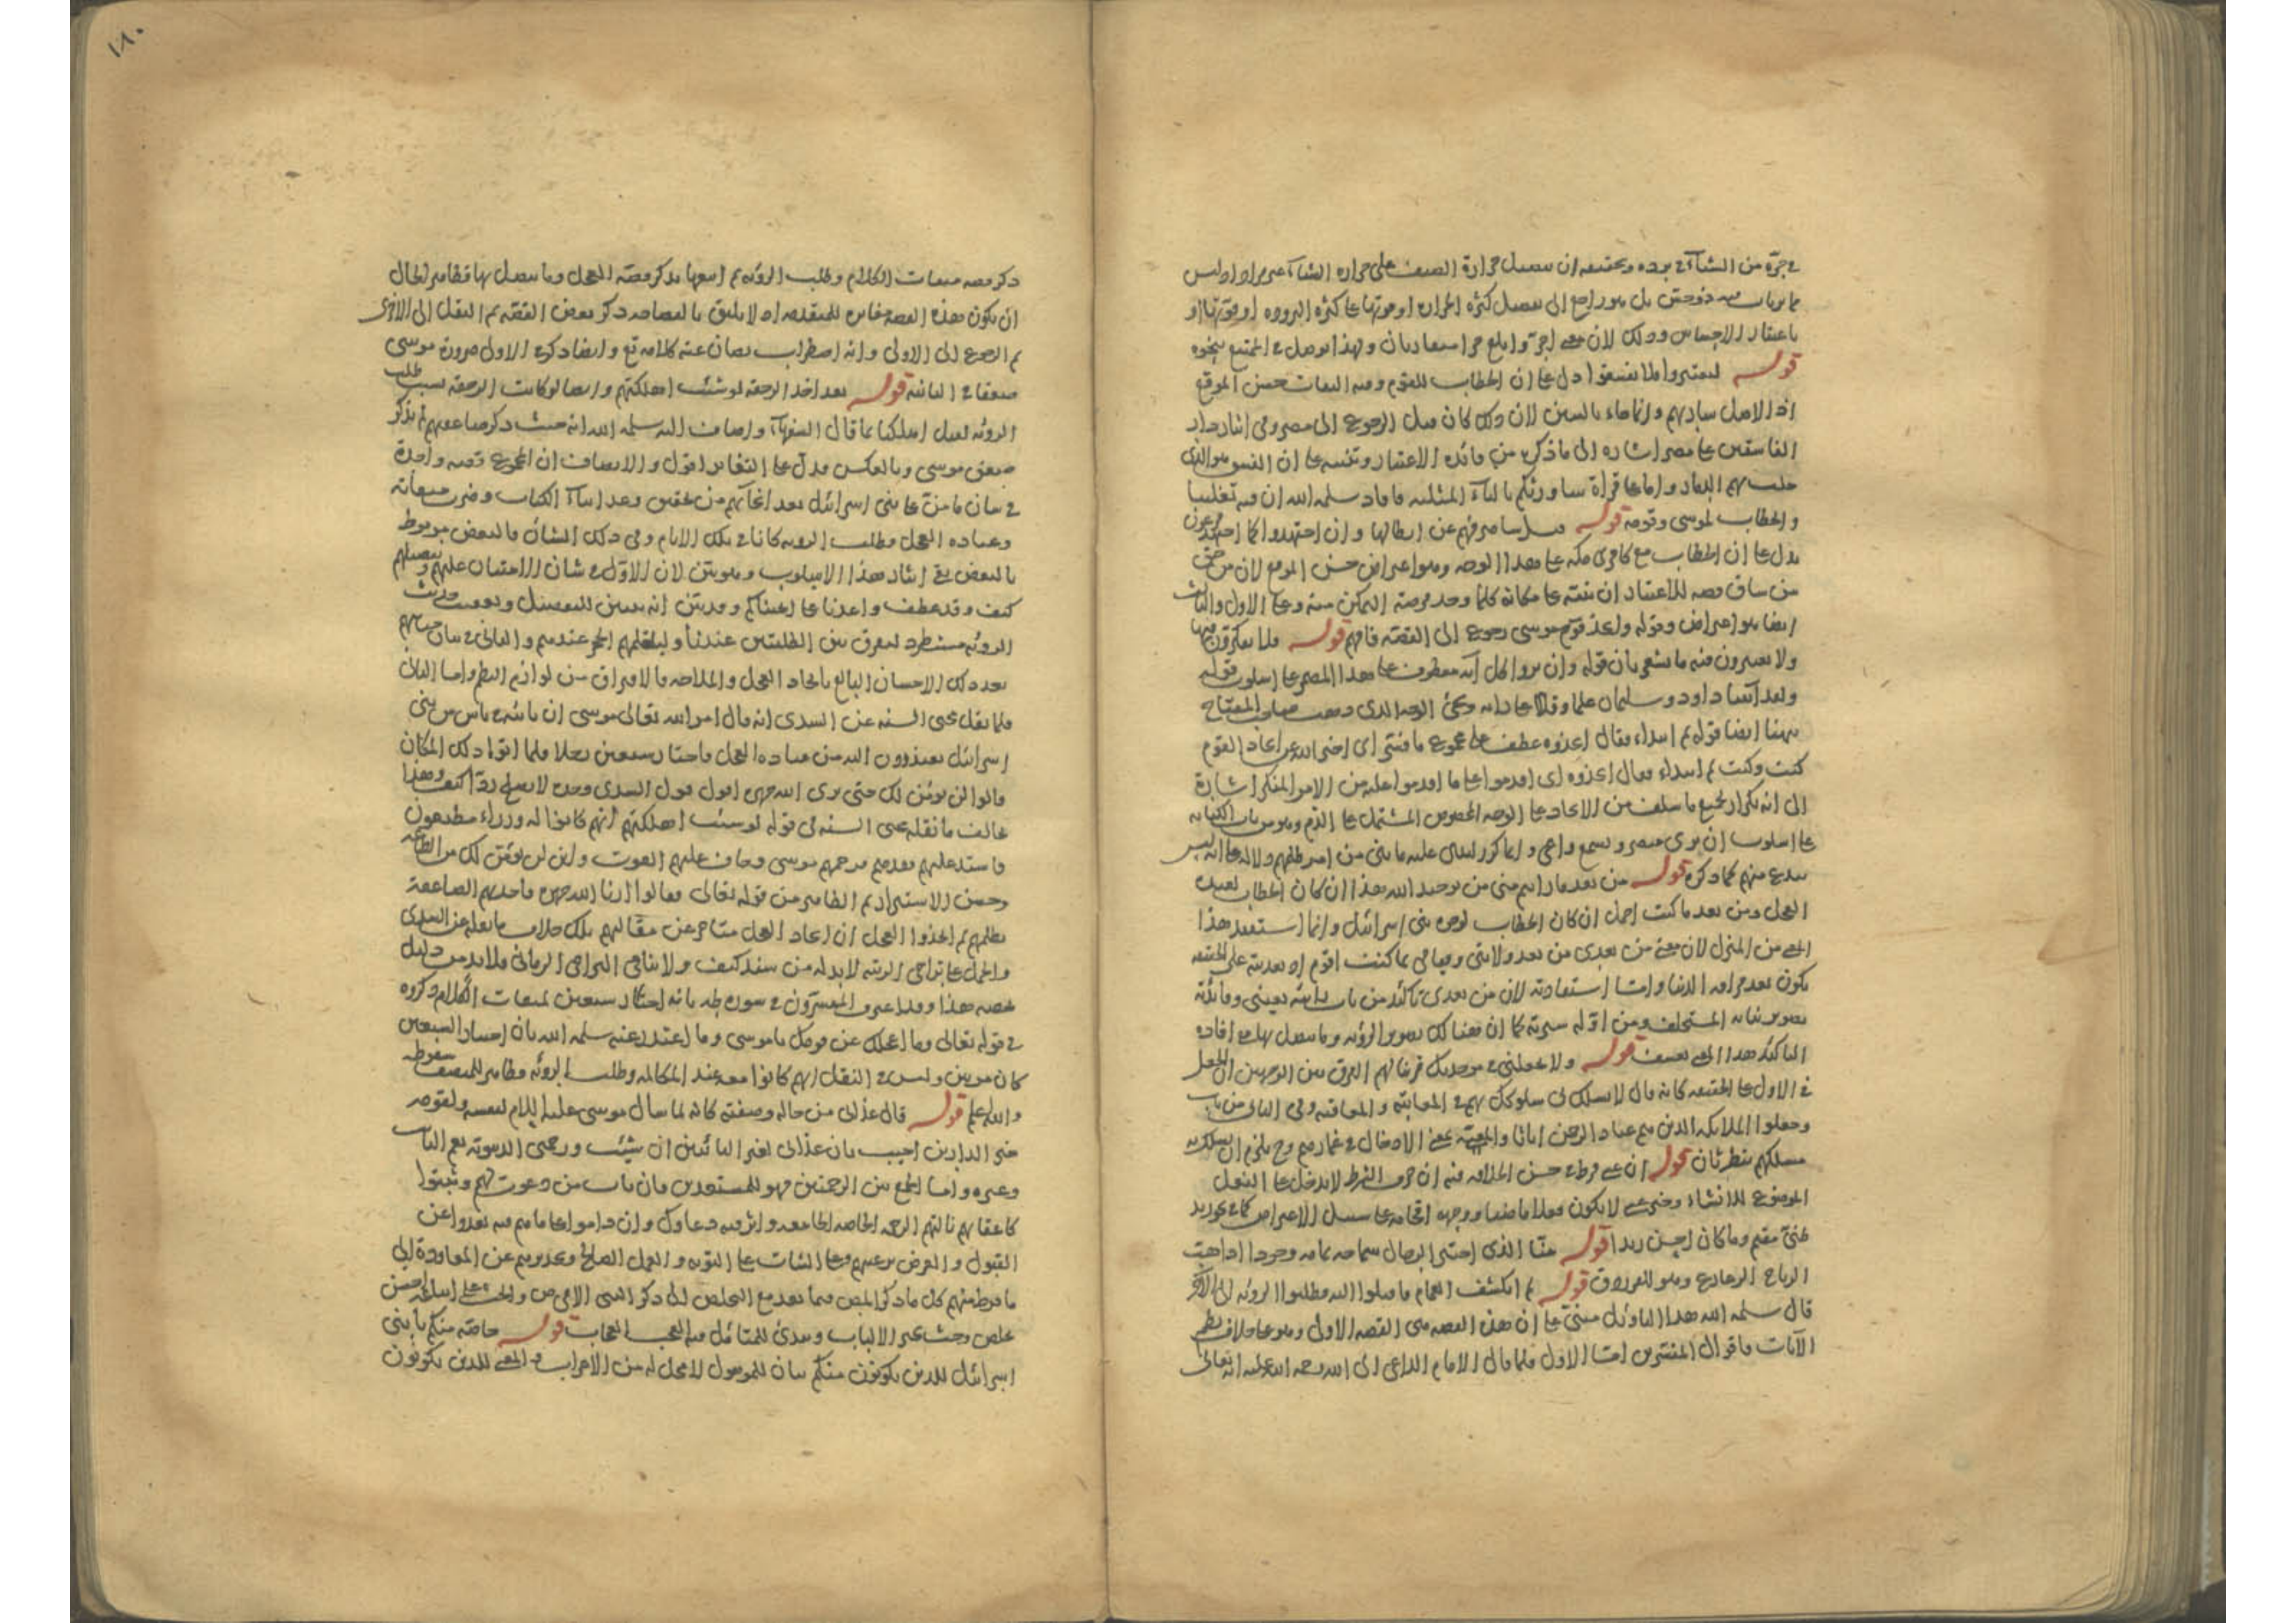 في حره من الشتاء في برده وتحقيقه ان تفضيل حرارة الصيف على حرارة الشتاء غير مراد اوليس
بل هو راجع الى تفضيل كثرة الحرارة وقوتها على كثرة البرودة وقوتها او
باعتبار الاحساس وذلك لان
قوله ليعتبروا فلا يفسقوا دل على ان الخطاب للقوم وفيه التفات حسن الموقع
اذ الاصل ساريهم وانما جاء بالسين لان ذلك كان قبل الرجوع الى مصر وفي ايثار دار
الفاسقين على مصر اشارة الى ما ذكره من فائدة الاعتبار وتنبيه على ان الفسق هو الذي
جلب بهم الدمار واما على قراءة ساورثكم بالثاء المثلثة فافاد سلمه الله ان فيه تغليبا
والخطاب لموسى وقومه قوله وقيل ساصرفهم عن ابطالها وان اجتهدوا كما اجتهد فرعون
يدل على ان الخطاب مع كافري مكة على هذا الوجه وهو اعتراض حسن الموقع لان من حق
من ساق قصة للاعتبار ان ينبه على مكانه كلما وجد فرصة التمكن منه وعلى الاول والثالث
ايضا هو اعتراض وقوله واتخذ قوم موسى رجوع الى القصة فافهم قوله فلا يفكرون فيها
ولا يعتبرون فيه ما يشعر بان قوله وان يروا كل آية معطوف على هذا المضمر على اسلوب قوله
ولقد آتينا داود وسليمان علما وقالا على رايه ويجيء الوجه الذي ذهب صاحب المفتاح
ههنا ايضا قوله ثم ابتداء فقال اتخذوه عطف على مجموع ما فسر اي اخبر الله عن اتخاذ القوم
كيت وكيت ثم ابتداء فقال اتخذوه اي اقدموا على ما اقدموا عليه من الامر المنكر اشارة
الى انه تكرار لجميع ما سلف من الاتخاذ على الوجه المخصوص المشتمل على الذم وهو من باب الكناية
على اسلوب ان يرى مبصر ويسمع واعي وانما كرر ليبنى عليه ما بني من امر ظلمهم ودلالة على انه ليس
ببدع منهم كما ذكره قوله من بعد ما رايتم مني من توحيد الله هذا ان كان الخطاب لعبدة
العجل ومن بعد ما كنت احمل ان كان الخطاب لوجوه بني اسرائيل وانما استفيد هذا
المعنى من المنزل لان معنى من بعدي من بعد ولايتي وقيامي بما كنت اقوم اذ بعديته على الحقيقة
يكون بعد فراقه الدنيا وانما استفادته لان من بعدي تاكيد من باب رايته بعيني وفائدته
تصوير نيابة المستخلف ومن اوله سيرته كما ان هنالك تصوير الرؤية وما يتصل بها مع افادة
التاكيد هذا المعنى بعينه قوله ولا تجعلني في موجدتك قرينا لهم الفرق بين الوجهين ان الجعل
في الاول على الحقيقة كانه قال لا تسلك بي سلوكك بهم في المعاتبة والمعاقبة وفي الثاني من باب
وجعلوا الملائكة الذين هم عباد الرحمن اناثا والمعنى الادخال في غمارهم وح يلزم ان يسلك به
مسلكهم بنظر ثان قوله ان فيه ان حرف الشرط لا يدخل على الفعل
الموضوع للانشاء لا يكون فعلا ماضيا ووجهه اقحامه على سبيل الاعتراض كما في نحو زيد
ظني مقيم وما كان احسن زيدا قوله منا الذي اختير الرجال سماحة تمامه وجودا اذا هبت
الرياح الزعازع وهو للفرزدق قوله ثم انكشف الغمام فاقبلوا اليه فطلبوا الرؤية الى الآخر
قال سلمه الله هذا التاويل مبني على ان هذه القصة هي القصة الاولى وهو على خلاف نظم
الآيات واقوال المفسرين اما الاول فلما قال الامام الداعي الى الله رحمة الله عليه انه تعالى
١٨٠
ذكر قصة ميقات الكلام وطلب الرؤية ثم اتبعها بذكر قصة العجل وما يتصل بها فظاهر الحال
ان يكون هذه القصة مغايرة للمتقدمة اذ لا يليق بالفصاحة ذكر بعض القصة ثم النقل الى الاخرى
ثم الرجوع الى الاولى وانه اضطراب يصان عنه كلامه تع وايضا ذكر في الاولى خرور موسى
صعقا في الثانية قوله بعد اخذ الرجفة لو شئت اهلكتهم وايضا لو كانت الرجفة بسبب طلب
الرؤية لقيل اتهلكنا بما قال السفهاء واضاف اليه سلمه الله انه حيث ذكر صاعقتهم لم يذكر
صعق موسى وبالعكس فدل على التغاير اقول والانصاف ان المجموع قصة واحدة
في بيان ما من على بني اسرائيل بعد انجائهم من تحقيق وعد ايتاء الكتاب وضرب ميقاته
وعبادة العجل وطلب الرؤية كانا في تلك الايام وفي ذلك الشان فالبعض مربوط
بالبعض بقي ايثار هذا الاسلوب وهو بين لان الاول في شان الامتنان عليهم وتفضيلهم
كيف وقد عطف واعدنا على انجيناكم وقد بين انه تبيين للتفضيل وتعقيب حديث
الرؤية مستطرد للفرق بين الطلبتين عندنا وليلقمهم الحجر عندهم والثاني في شان جنايتهم
بعد ذلك الاحسان البالغ باتخاذ العجل والملاحة فالافتراق من لوازم النظم واما الثاني
فلما نقل محيي السنة عن السدي انه قال امر الله تعالى موسى ان ياتيه في ناس من بني
اسرائيل يعتذرون اليه من عبادة العجل فاختار سبعين رجلا فلما اتوا ذلك المكان
قالوا لن نؤمن لك حتى نرى الله جهرة اقول قول السدي وحده لا يصلح ردا كيف وهذا
يخالف ما نقله محيي السنة في قوله لو شئت اهلكتهم انهم كانوا له وزراء مطيعين
فاشتد عليهم فقدهم فرحمهم موسى وخاف عليهم الفوت واين لن نؤمن لك من الطاعة
وحسن الاستيزار ثم الظاهر من قوله تعالى فقالوا ارنا الله جهرة فاخذتهم الصاعقة
بظلمهم ثم اتخذوا العجل ان اتخاذ العجل متاخر عن مقالتهم تلك خلاف ما نقله عن السدي
والحمل على تراخي الرتبة لا بد له من سند كيف ولا ينافي التراخي الزماني فلا بد من دليل
يخصه هذا وقد اعترف المفسرون في سورة طه بانه اختار سبعين لميقات الكلام ذكروه
في قوله تعالى وما اعجلك عن قومك يا موسى وما اعتذر عنه سلمه الله بان اختيار السبعين
كان مرتين وليس في النقل انهم كانوا معه عند المكالمة وطلب الرؤية فظاهر للمنصف سقوطه
والله اعلم قوله قال عذابي من حاله وصفته كانه لما سال موسى عليه السلام لنفسه ولقومه
خير الدارين اجيب بان عذابي لغير التائبين ان شئت ورحمتي الدنيوية تعم التائب
وغيره واما الجمع بين الرحمتين فهو للمستعدين فان تاب من دعوت لهم وثبتوا
كاعقابهم نالتهم الرحمة الخاصة الجامعة واثر فيه دعاؤك وان داموا على ما هم فيه بعدوا عن
القبول والغرض ترغيبهم على الثبات على التوبة والعمل الصالح وتحذيرهم عن المعاودة الى
ما فرط منهم كل ما ذكر المص فيما بعد مع التخلص الى ذكر النبي الامي ص والحث على اتباعه احسن
تخلص وحث يحير الالباب ويبدئ للمتامل فيه العجب العجاب قوله خاصة منكم يا بني
اسرائيل للذين يكونون منكم بيان للموصول لا محل له من الاعراب والمعنى للذين يكونون